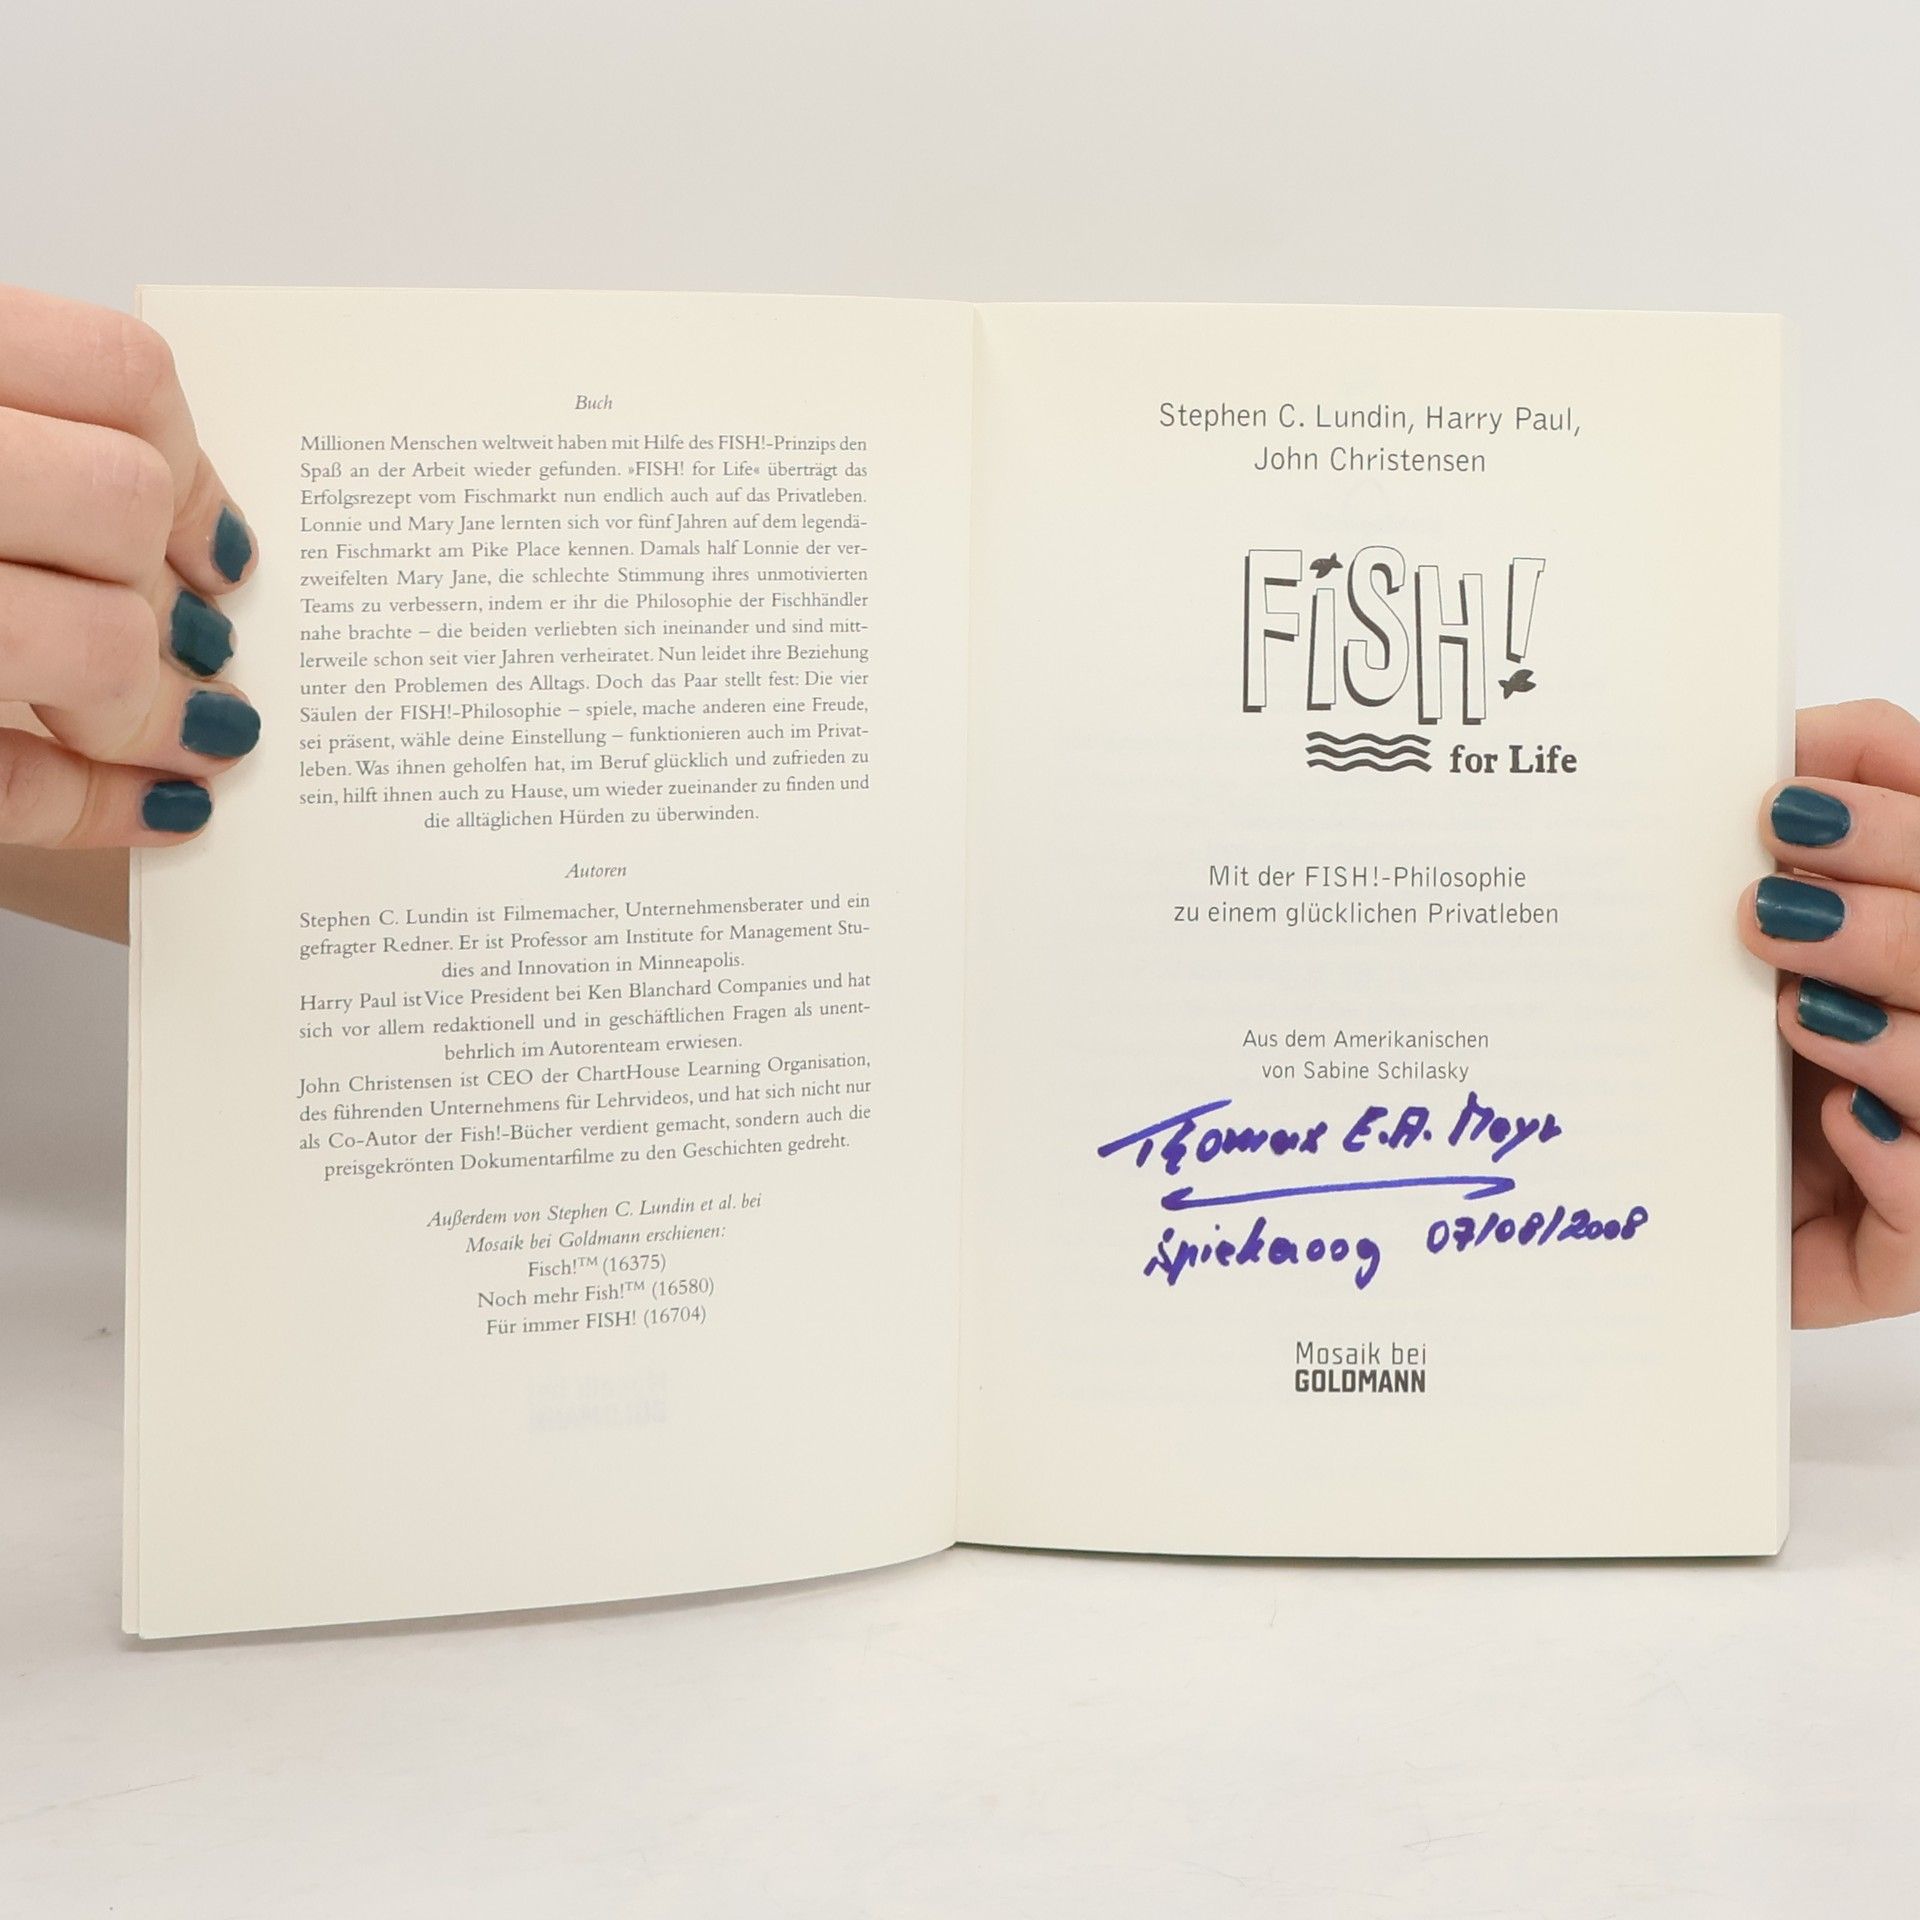 Buch
Millionen Menschen weltweit haben mit Hilfe des FISH!-Prinzips den
Spaß an der Arbeit wieder gefunden. »FISH! for Life« überträgt das
Erfolgsrezept vom Fischmarkt nun endlich auch auf das Privatleben.
Lonnie und Mary Jane lernten sich vor fünf Jahren auf dem legendä-
ren Fischmarkt am Pike Place kennen. Damals half Lonnie der ver-
zweifelten Mary Jane, die schlechte Stimmung ihres unmotivierten
Teams zu verbessern, indem er ihr die Philosophie der Fischhändler
nahe brachte – die beiden verliebten sich ineinander und sind mitt-
lerweile schon seit vier Jahren verheiratet. Nun leidet ihre Beziehung
unter den Problemen des Alltags. Doch das Paar stellt fest: Die vier
Säulen der FISH!-Philosophie – spiele, mache anderen eine Freude,
sei präsent, wähle deine Einstellung – funktionieren auch im Privat-
leben. Was ihnen geholfen hat, im Beruf glücklich und zufrieden zu
sein, hilft ihnen auch zu Hause, um wieder zueinander zu finden und
die alltäglichen Hürden zu überwinden.
Autoren
Stephen C. Lundin ist Filmemacher, Unternehmensberater und ein
gefragter Redner. Er ist Professor am Institute for Management Stu-
dies and Innovation in Minneapolis.
Harry Paul ist Vice President bei Ken Blanchard Companies und hat
sich vor allem redaktionell und in geschäftlichen Fragen als unent-
behrlich im Autorenteam erwiesen.
John Christensen ist CEO der ChartHouse Learning Organisation,
des führenden Unternehmens für Lehrvideos, und hat sich nicht nur
als Co-Autor der Fish!-Bücher verdient gemacht, sondern auch die
preisgekrönten Dokumentarfilme zu den Geschichten gedreht.
Außerdem von Stephen C. Lundin et al. bei
Mosaik bei Goldmann erschienen:
Fisch!™ (16375)
Noch mehr Fish!™ (16580)
Für immer FISH! (16704)
Stephen C. Lundin, Harry Paul,
John Christensen
FiSH!
for Life
Mit der FISH!-Philosophie
zu einem glücklichen Privatleben
Aus dem Amerikanischen
von Sabine Schilasky
Thomas E.A. Mayr
Spiekeroog 07/08/2008
Mosaik bei
GOLDMANN